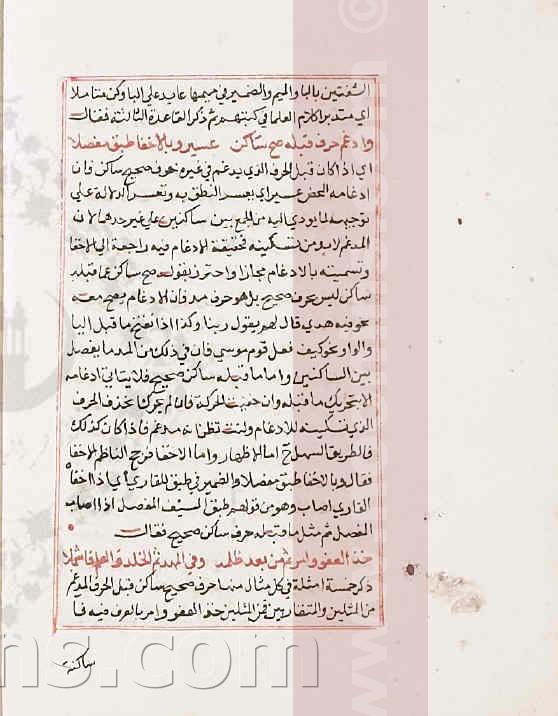 الشفتين بالباو الميم والضمير في ميمها عايد علي البا وكن متاملا
اي متدبرا كلام العلما في كتبهم ثم ذكر القاعدة الثالثة فقال
وادغم حرف قبله صح ساكن عسير وبالاخفا طبق مفصلا
اي اذا كان قبل الحرف الذي يدغم في غيره حرف صحيح ساكن فان
ادغامه المحض عسير اي يعسر النطق به وتعسر الدلالة علي
توجيهه لما يودي اليه من الجمع بين ساكنين علي غير حدهما لان
المدغم لابد من تسكينه فحقيقة الادغام فيه راجعة الي الاخفا
وتسميته بالادغام مجازا واحترز بقوله صح ساكن عما قبله
ساكن ليس بحرف صحيح بل هو حرف مد فان الادغام يصح معه
نحو فيه هدي قال لهم يقول ربنا وكذا اذا انفتح ما قبل اليا
والواو نحو كيف فعل قوم موسي فان في ذلك من المد ما يفصل
بين الساكنين واما ما قبله ساكن صحيح فلا يتاتي ادغامه
الا بتحريك ما قبله وان خفيت الحركة فان لم يحرك انحذف الحرف
الذي تسكنه للادغام وانت تظن انه مدغم فاذا كان كذلك
فالطريق السهل اما الاظهار واما الاخفا فرجح الناظم الاخفا
فقال وبالاخفا طبق مفصلا والضمير في طبق للقاري اي اذا اخفاه
القاري اصاب وهو من قولهم طبق السيف المفصل اذا اصاب
المفصل ثم مثل ما قبله حرف ساكن صحيح فقال
خذ العفو وامر ثم من بعد ظلمه وفي المهد ثم الخلد والعلم فاشملا
ذكر خمسة امثلة في كل مثال منها حرف صحيح ساكن قبل الحرف المدغم
من المثلين والمتقاربين فمن المثلين خذ العفو وامر بالعرف فيه فا
ساكنة
ns.com